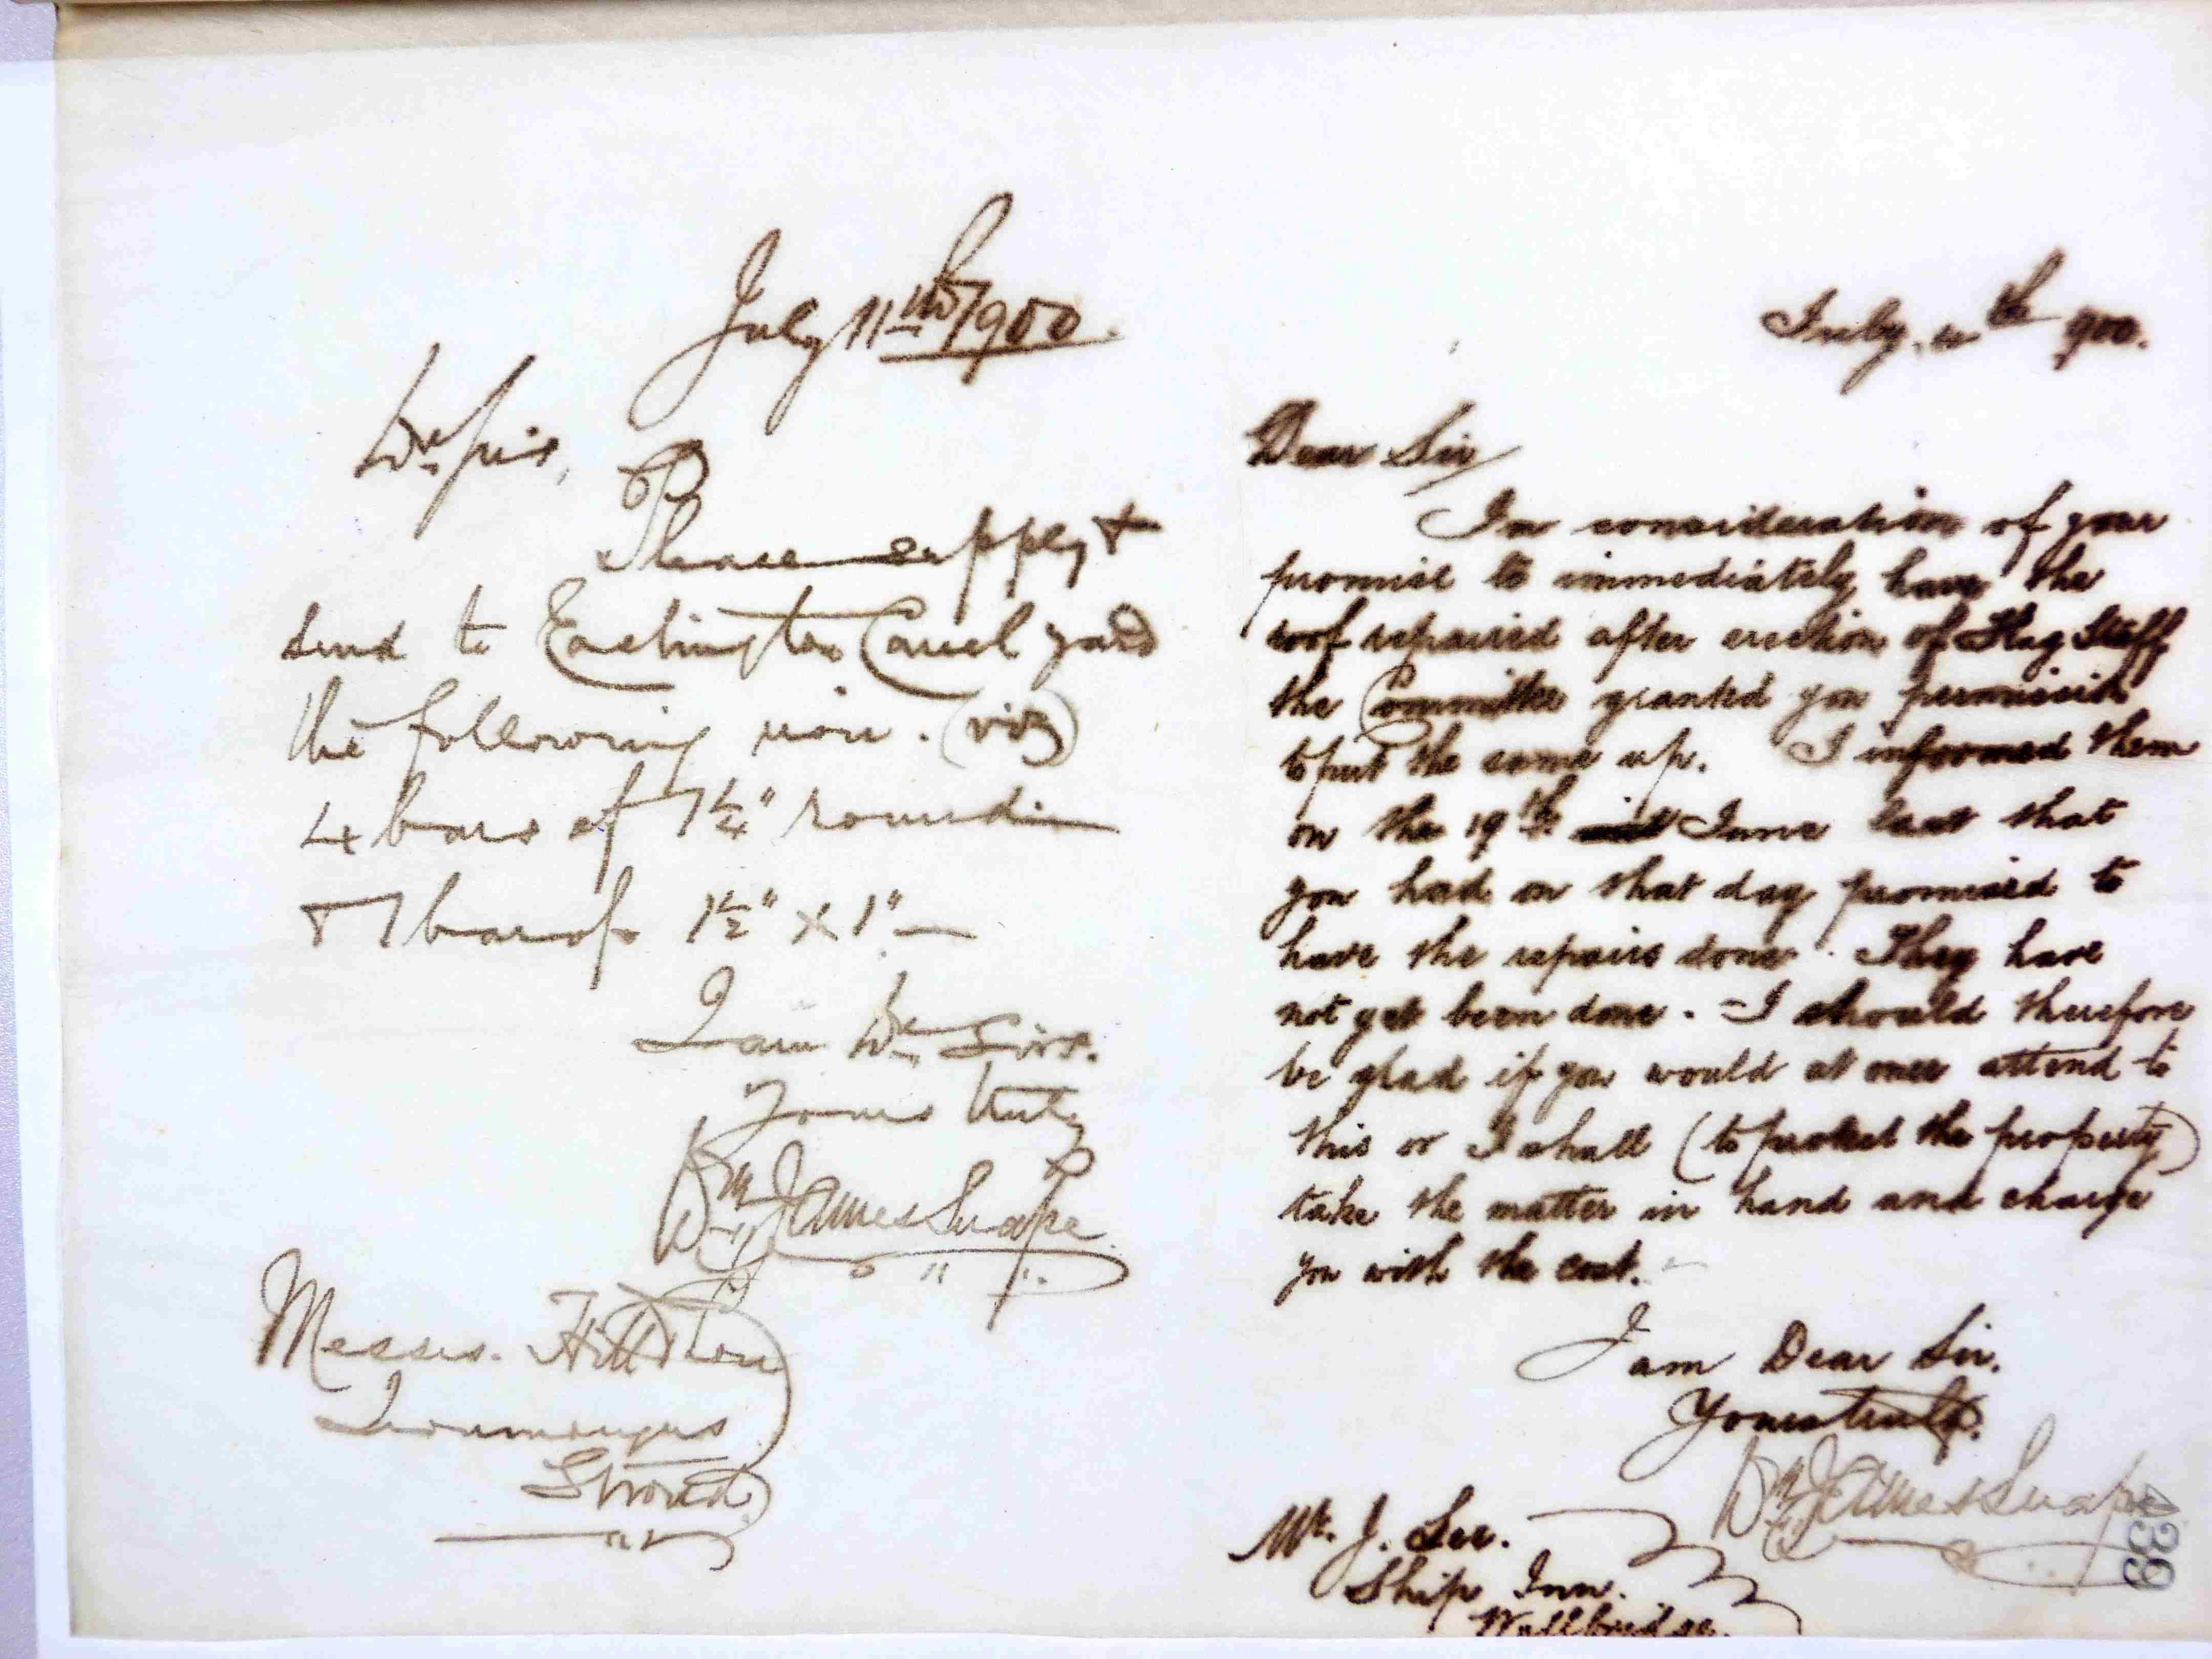 July 11th 1900.
Dr Sirs,
Please supply &
send to Eastington Canal yard
the following iron. (viz)
4 bars of 1 1/4" round
& 1 bar of 1 1/2" x 1"
I am Dr Sirs.
Yours truly
Wm James Snape
Messrs. Hill & Son
Ironmongers
Stroud
July. 11th 900.
Dear Sir
In consideration of your
promise to immediately have the
roof repaired after erection of Flag Staff
the Committee granted you permission
to put the same up. I informed them
on the 19th June last that
you had on that day promised to
have the repairs done. They have
not yet been done. - I should therefore
be glad if you would at once attend to
this or I shall (to protect the property)
take the matter in hand and charge
you with the cost.
I am Dear Sir.
Yours truly.
Wm James Snape
Mr. J. Lee.
Ship Inn.
Wallbridge.
439